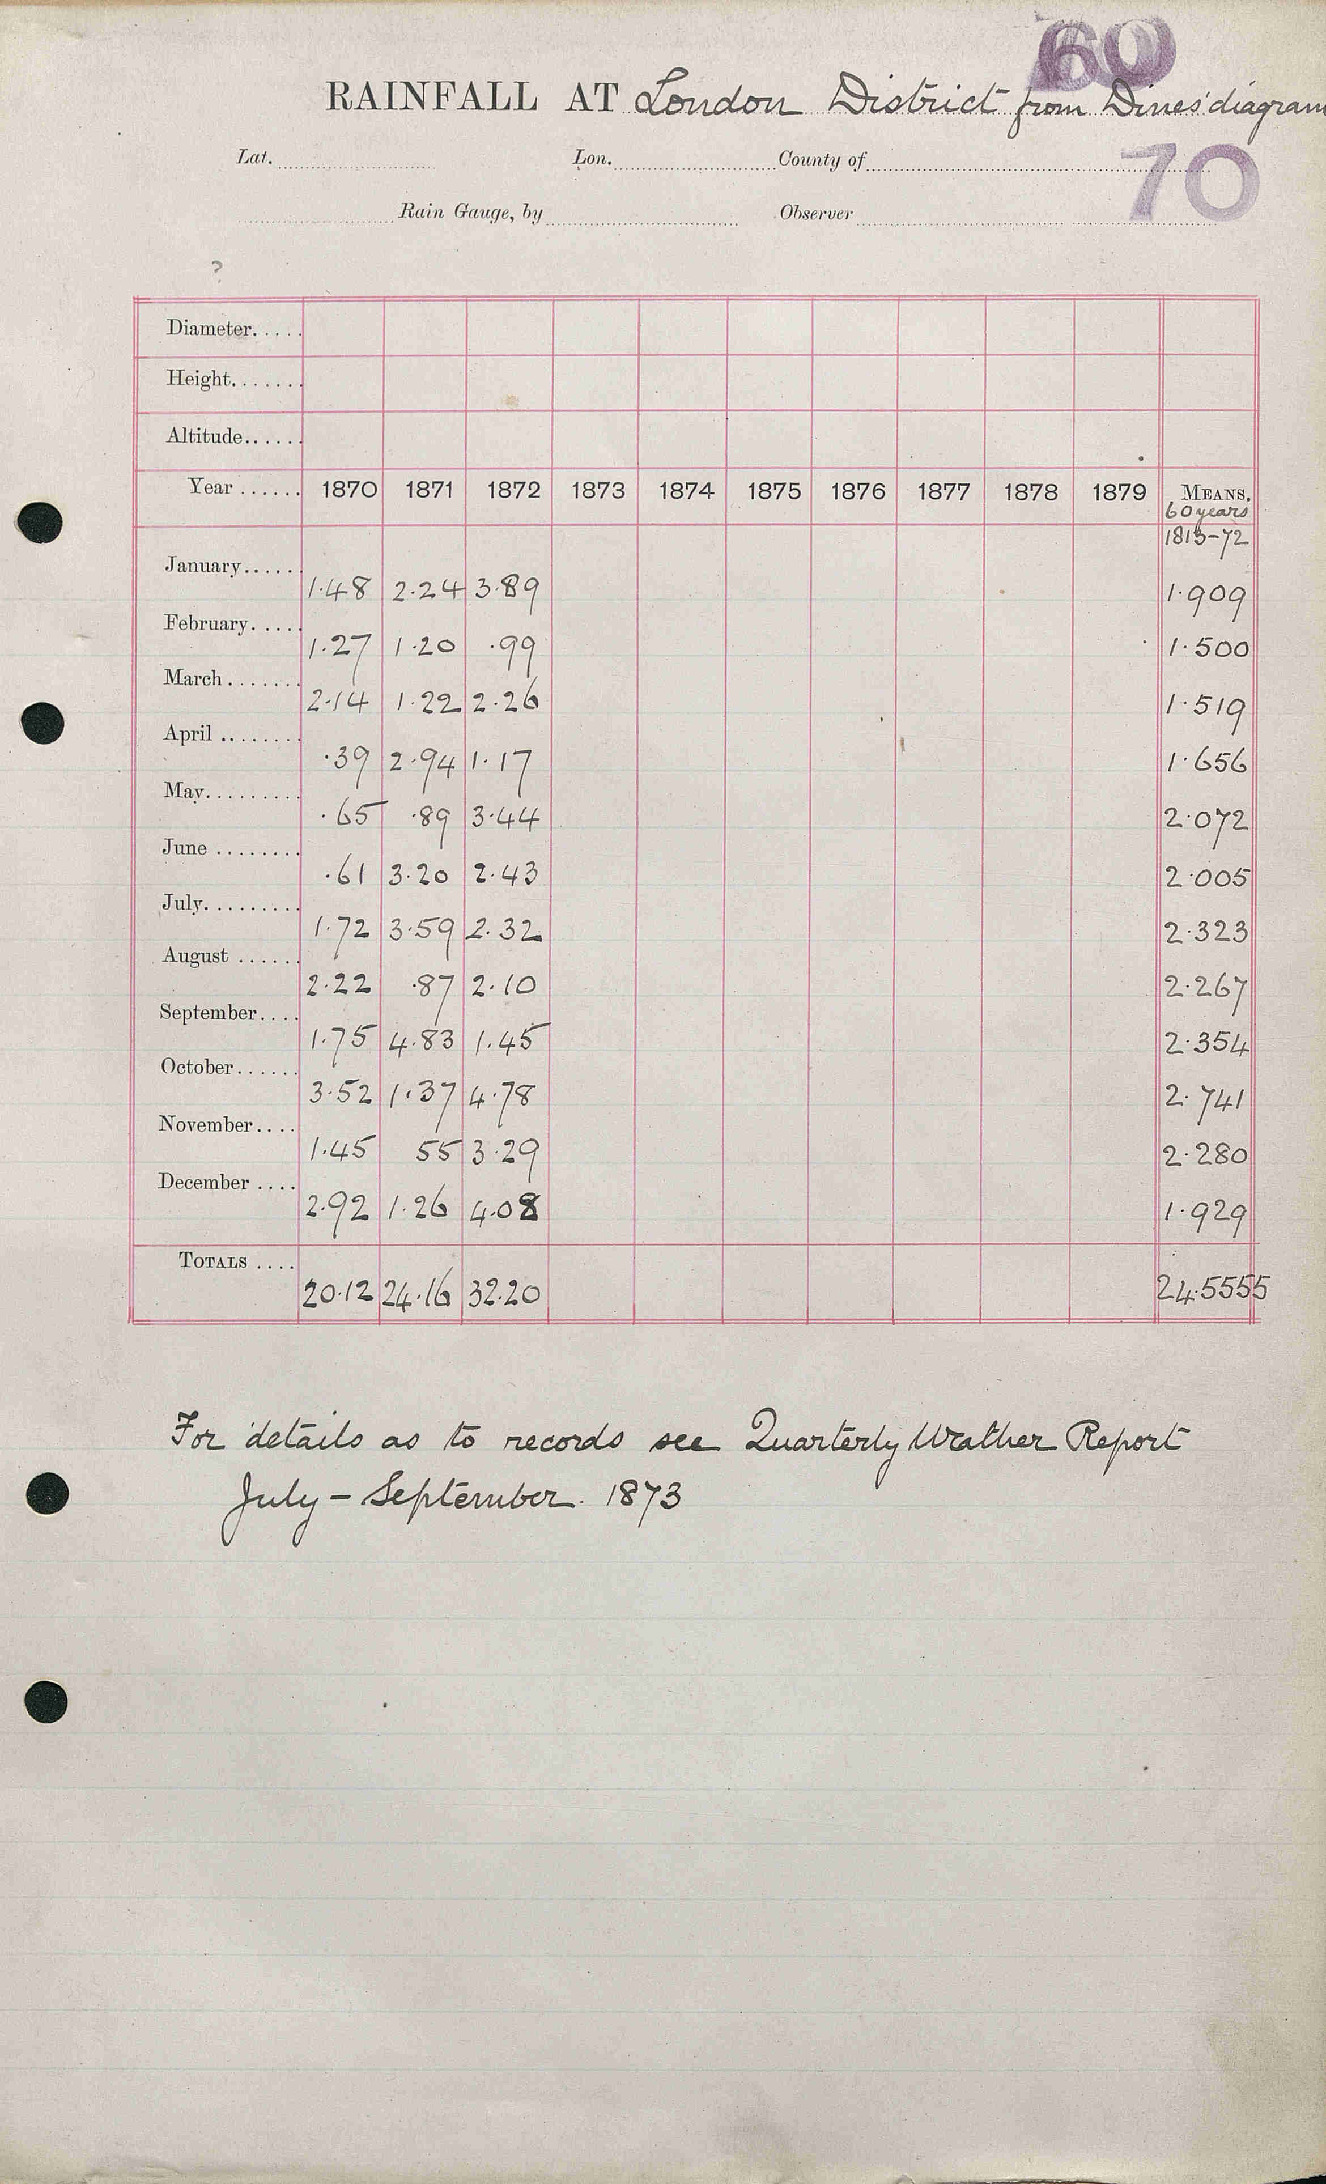 60
RAINFALL AT London District from Dines' diagram
Lat. Lon. County of
70
Rain Gauge, by Observer
?
Diameter.....
Height.......
Altitude......
Year ...... 1870 1871 1872 1873 1874 1875 1876 1877 1878 1879 MEANS.
60 years
1813-72
January...... 1.48 2.24 3.89 1.909
February..... 1.27 1.20 .99 1.500
March....... 2.14 1.22 2.26 1.519
April ........ .39 2.94 1.17 1.656
May......... .65 .89 3.44 2.072
June ........ .61 3.20 2.43 2.005
July......... 1.72 3.59 2.32 2.323
August ...... 2.22 .87 2.10 2.267
September.... 1.75 4.83 1.45 2.354
October...... 3.52 1.37 4.78 2.741
November.... 1.45 55 3.29 2.280
December .... 2.92 1.26 4.08 1.929
TOTALS .... 20.12 24.16 32.20 24.5555
For details as to records see Quarterly Weather Report
July - September. 1873